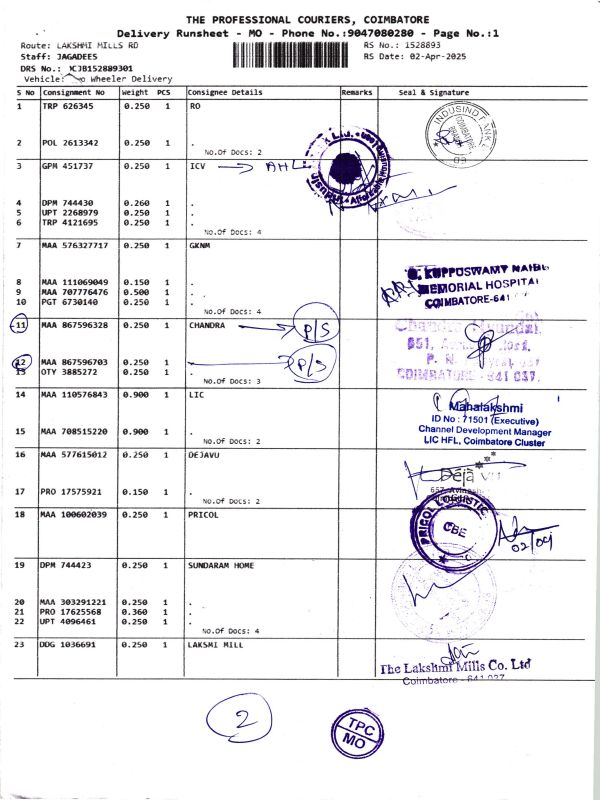 THE PROFESSIONAL COURIERS, COIMBATORE
Delivery Runsheet - MO - Phone No.:9047080280 - Page No.:1
Route: LAKSHMI MILLS RD
RS No.: 1528893
Staff: JAGADEES
RS Date: 02-Apr-2025
DRS No.: JCJB152889301
Vehicle: Wheeler Delivery
S No Consignment No Weight PCS Consignee Details Remarks Seal & Signature
1 TRP 626345 0.250 1 RO
2 POL 2613342 0.250 1 .
No.Of Docs: 2
INDUSIND BANK
COIMBATORE
3 GPM 451737 0.250 1 ICV
4 DPM 744430 0.260 1 .
5 UPT 2268979 0.250 1 .
6 TRP 4121695 0.250 1 .
No.Of Docs: 4
7 MAA 576327717 0.250 1 GKNM
8 MAA 111069049 0.150 1 .
9 MAA 707776476 0.500 1 .
10 PGT 6730140 0.250 1 .
No.Of Docs: 4
G. KUPPUSWAMY NAIDU
MEMORIAL HOSPITAL
COIMBATORE-641
11 MAA 867596328 0.250 1 CHANDRA P/S
12 MAA 867596703 0.250 1 . P/S
13 OTY 3885272 0.250 1 .
No.Of Docs: 3
COIMBATORE - 641 037.
14 MAA 110576843 0.900 1 LIC
15 MAA 708515220 0.900 1 .
No.Of Docs: 2
Mahalakshmi
ID No : 71501 (Executive)
Channel Development Manager
LIC HFL, Coimbatore Cluster
16 MAA 577615012 0.250 1 DEJAVU
17 PRO 17575921 0.150 1 .
No.Of Docs: 2
Deja Vu
18 MAA 100602039 0.250 1 PRICOL
PRICOL LOGISTIC
CBE
02/04
19 DPM 744423 0.250 1 SUNDARAM HOME
20 MAA 303291221 0.250 1 .
21 PRO 17625568 0.360 1 .
22 UPT 4096461 0.250 1 .
No.Of Docs: 4
23 DDG 1036691 0.250 1 LAKSMI MILL
The Lakshmi Mills Co. Ltd
Coimbatore - 641 037
2
TPC
MO